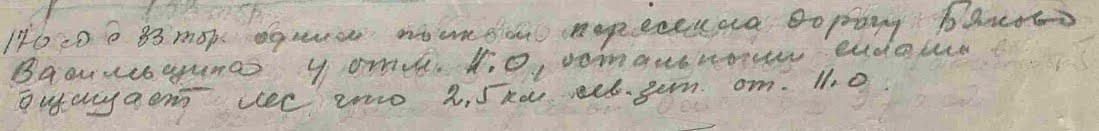 170 с.д. с 83 тбр. одним полком пересекла дорогу Бяково
Васильщина у отм. 11.0, остальными силами
очищает лес что 2.5 км сев. зап. от. 11.0.